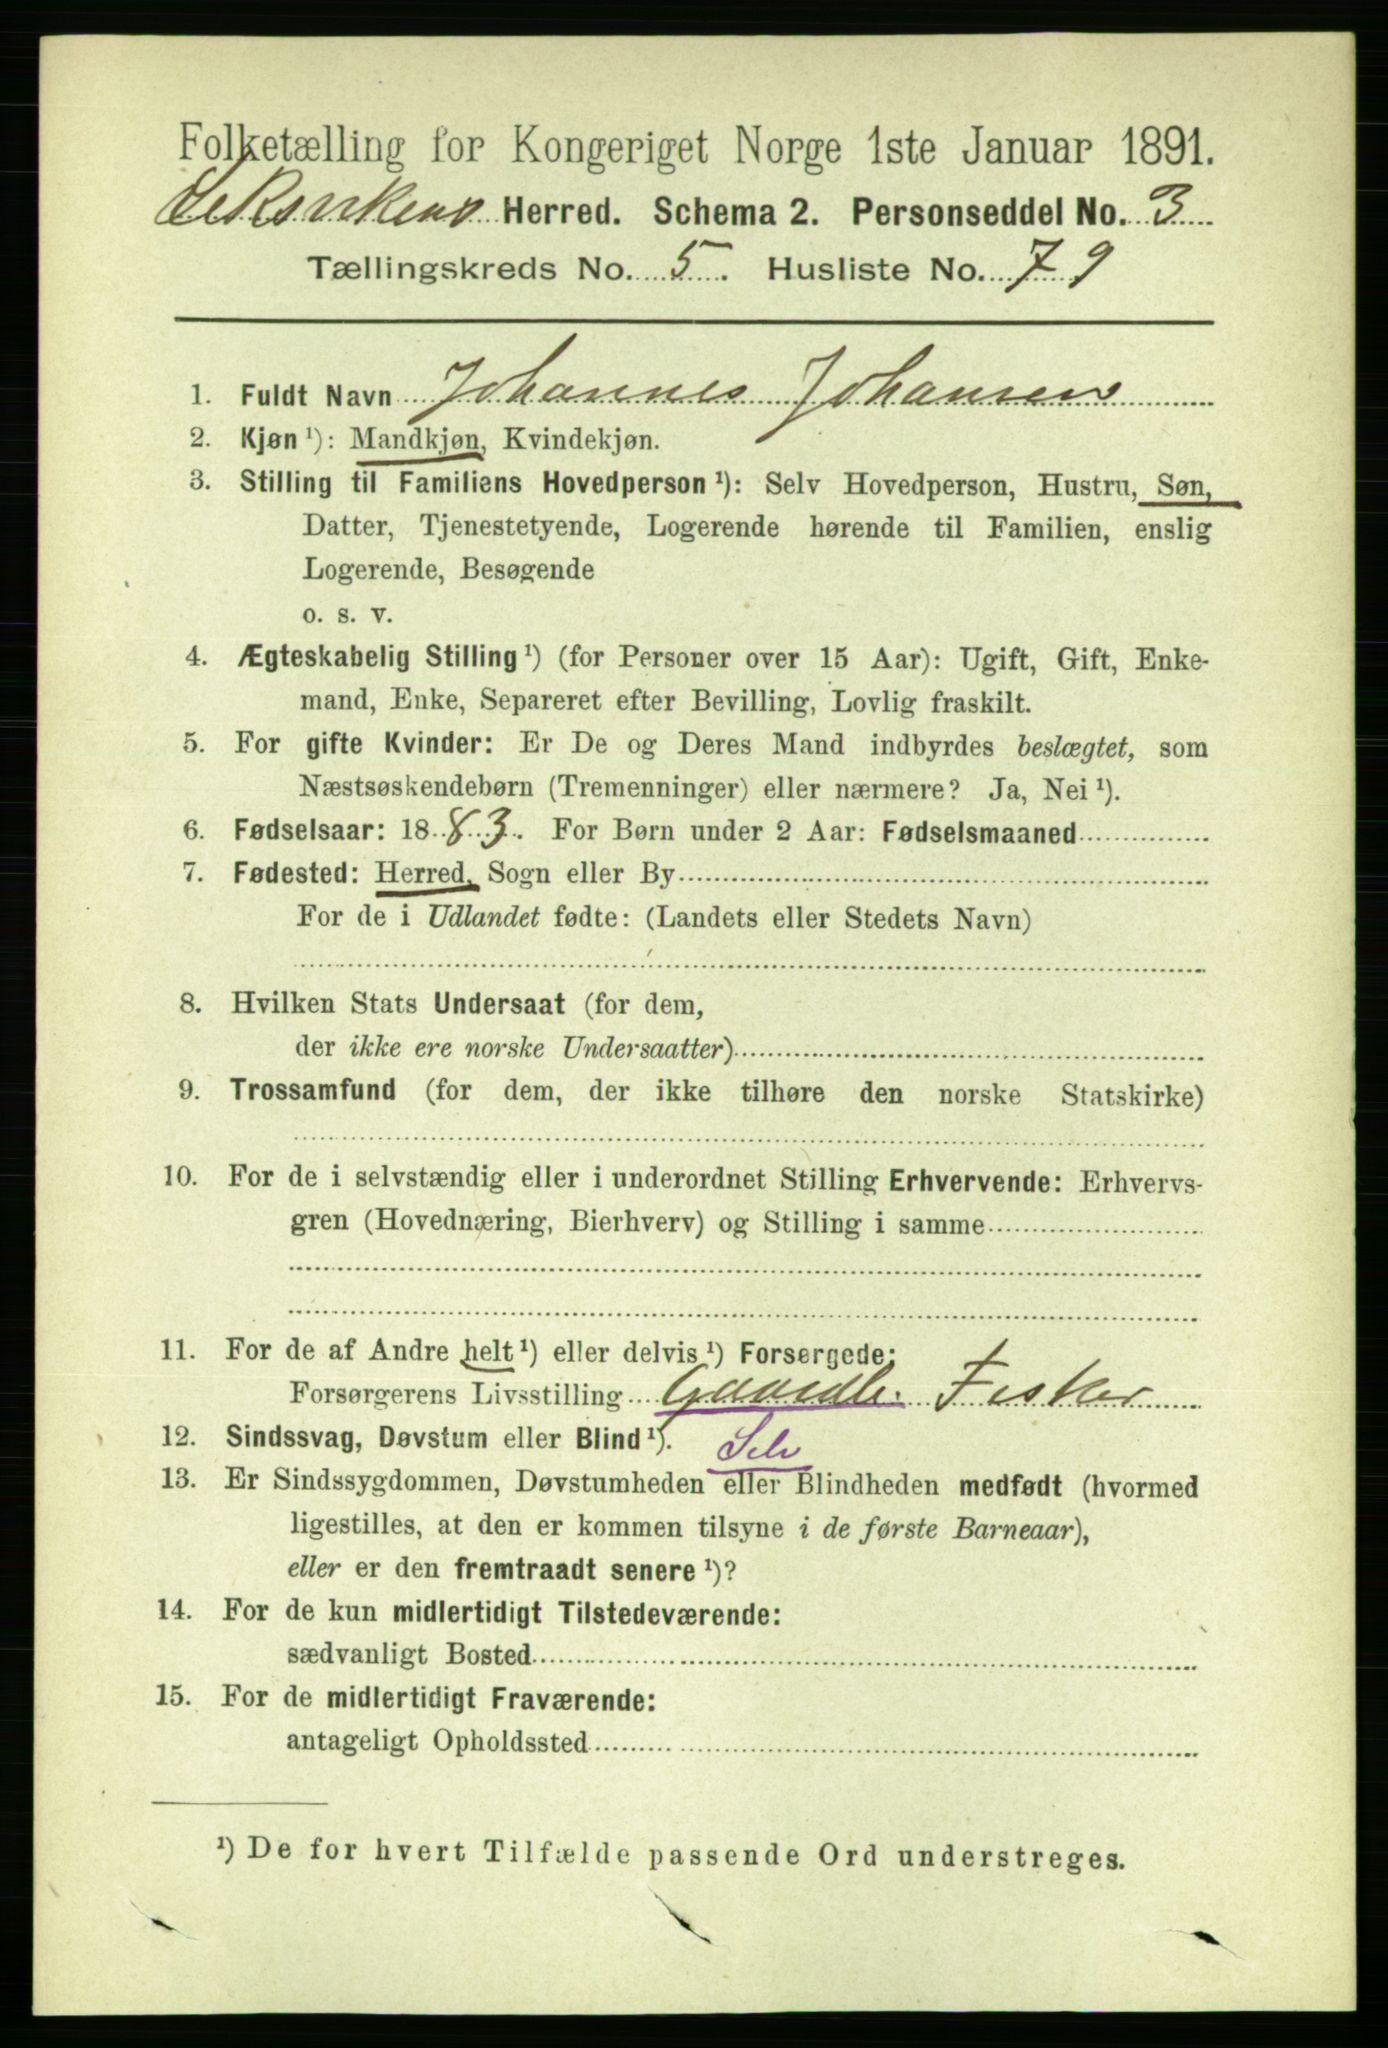 Folketælling for Kongeriget Norge 1ste Januar 1891.
Leksvikens Herred. Schema 2. Personseddel No. 3
Tællingskreds No. 5. Husliste No. 79
1. Fuldt Navn Johannes Johansen
2. Kjøn ¹): Mandkjøn, Kvindekjøn.
3. Stilling til Familiens Hovedperson ¹): Selv Hovedperson, Hustru, Søn,
Datter, Tjenestetyende, Logerende hørende til Familien, enslig
Logerende, Besøgende
o. s. v.
4. Ægteskabelig Stilling ¹) (for Personer over 15 Aar): Ugift, Gift, Enke-
mand, Enke, Separeret efter Bevilling, Lovlig fraskilt.
5. For gifte Kvinder: Er De og Deres Mand indbyrdes beslægtet, som
Næstsøskendebørn (Tremenninger) eller nærmere? Ja, Nei ¹).
6. Fødselsaar: 1883. For Børn under 2 Aar: Fødselsmaaned
7. Fødested: Herred, Sogn eller By
For de i Udlandet fødte: (Landets eller Stedets Navn)
8. Hvilken Stats Undersaat (for dem,
der ikke ere norske Undersaatter)
9. Trossamfund (for dem, der ikke tilhøre den norske Statskirke)
10. For de i selvstændig eller i underordnet Stilling Erhvervende: Erhvervs-
gren (Hovednæring, Bierhverv) og Stilling i samme
11. For de af Andre helt ¹) eller delvis ¹) Forsørgede:
Forsørgerens Livsstilling Gaardb. Fisker
12. Sindssvag, Døvstum eller Blind ¹). Selv
13. Er Sindssygdommen, Døvstumheden eller Blindheden medfødt (hvormed
ligestilles, at den er kommen tilsyne i de første Barneaar),
eller er den fremtraadt senere ¹)?
14. For de kun midlertidigt Tilstedeværende:
sædvanligt Bosted
15. For de midlertidigt Fraværende:
antageligt Opholdssted
¹) De for hvert Tilfælde passende Ord understreges.